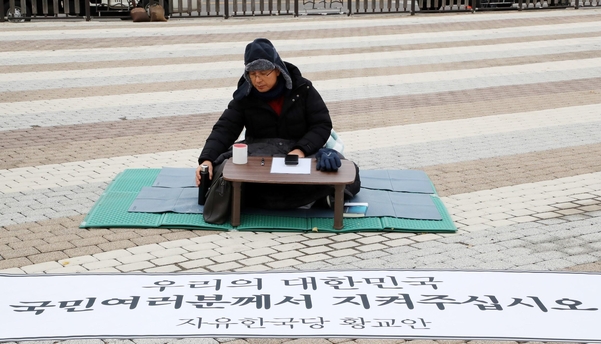 우리의 대한민국
국민여러분께서 지켜주십시오
자유한국당 황교안